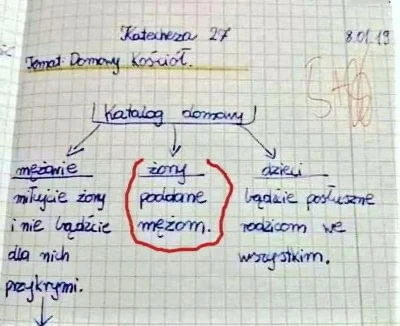 Katecheza 27
8.01.19
Temat: Domowy Kościół.
Katalog domowy
mężowie
miłujcie żony
i nie bądźcie
dla nich
przykrymi.
żony
poddane
mężom.
dzieci
bądźcie posłuszne
rodzicom we
wszystkim.